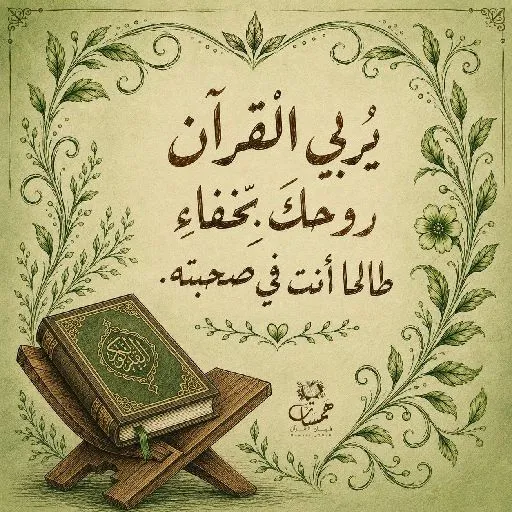 يُربي الْقرآن
روحكَ بِّخفاءِ
طالما أنت في صحبته.